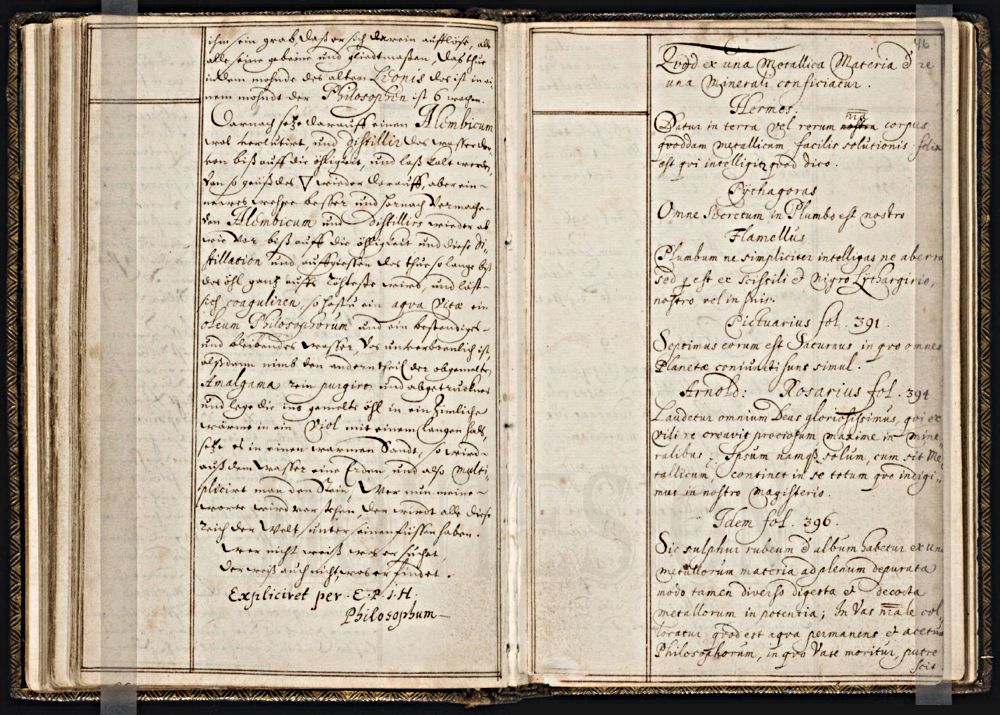 ihm sein grab daß er sich darein aufflöse, als
alle seine gebeine und gliedtmaßen, das thue
in dem monde des alten Leonis das ist in ei-
nem mohndt der Philosophen ist 6 wochen.
Darnach setze darauff einen Alembicum
und distillir das wasser da-
von biß auff die öhligkeit, und laß kalt werden,
das ▽ wieder darauff, aber ein-
besser und hernach vermache
den Alembicum und distillire wieder ab
wie vor biß auff die öhligkeit und diese Di-
stillation und auffgiessen das thue so lange biß
das öhl gantz und läst
sich coaguliren, so hastu ein aqva vitæ ein
oleum Philosophorum und ein bestendiges
und bleibendes wasser, das unverbrenlich ist,
alßdann nimb den andern theil der obgemelten
Amalgama rein purgirt und abgetrucknet
und lege die ins gemelte öhl in ein zimliche
wärme in ein Viol mit einem langen halß,
setze es in einen warmen Sandt, so wird
auß dem wasser eine Erden und also multi-
plicirt man den Stein, Wer nun meine
worte wird verstehen der wird alle diese
reich der Welt unter seinen füssen haben.
Wer nicht weiß was er suchet
Der weiß auch nicht was er findet.
Explicivet per E.P.I.H.
Philosophum
46
Qvod ex una Metallica Materia & re
una Minerali conficiatur.
Hermes.
Datur in terra vel rerum nostra corpus
qvoddam metallicum facilis solutionis felix
est qvi intelligit qvod dico.
Pythagoras
Omne Secretum in Plumbo est nostro
Flamellus
Plumbum ne simpliciter intelligas ne aberra
sed q est ex scissili & nigro Lythargirio,
nostro vel in suis.
Pictuarius fol. 391.
Septimus eorum est Saturnus in qvo omnes
Planetæ coniuncti sunt simul.
Arnold: Rosarius fol. 394
Laudetur omnium Deus gloriosissimus, qvi ex
vili re creavit preciosum maxime in mine-
ralibus: Ipsum namq solum, cum sit Me-
tallicum, continet in se totum qvo indigi-
mus in nostro magisterio.
Idem fol. 396.
Sic sulphur rubeum & album habetur ex una
metallorum materia ad plenum depurata
modo tamen diverso digesta et decocta
metallorum in potentia; In Vas col-
locatur qvod est aqva permanens & acetum
Philosophorum, in qvo Vase moritur, putre
scit